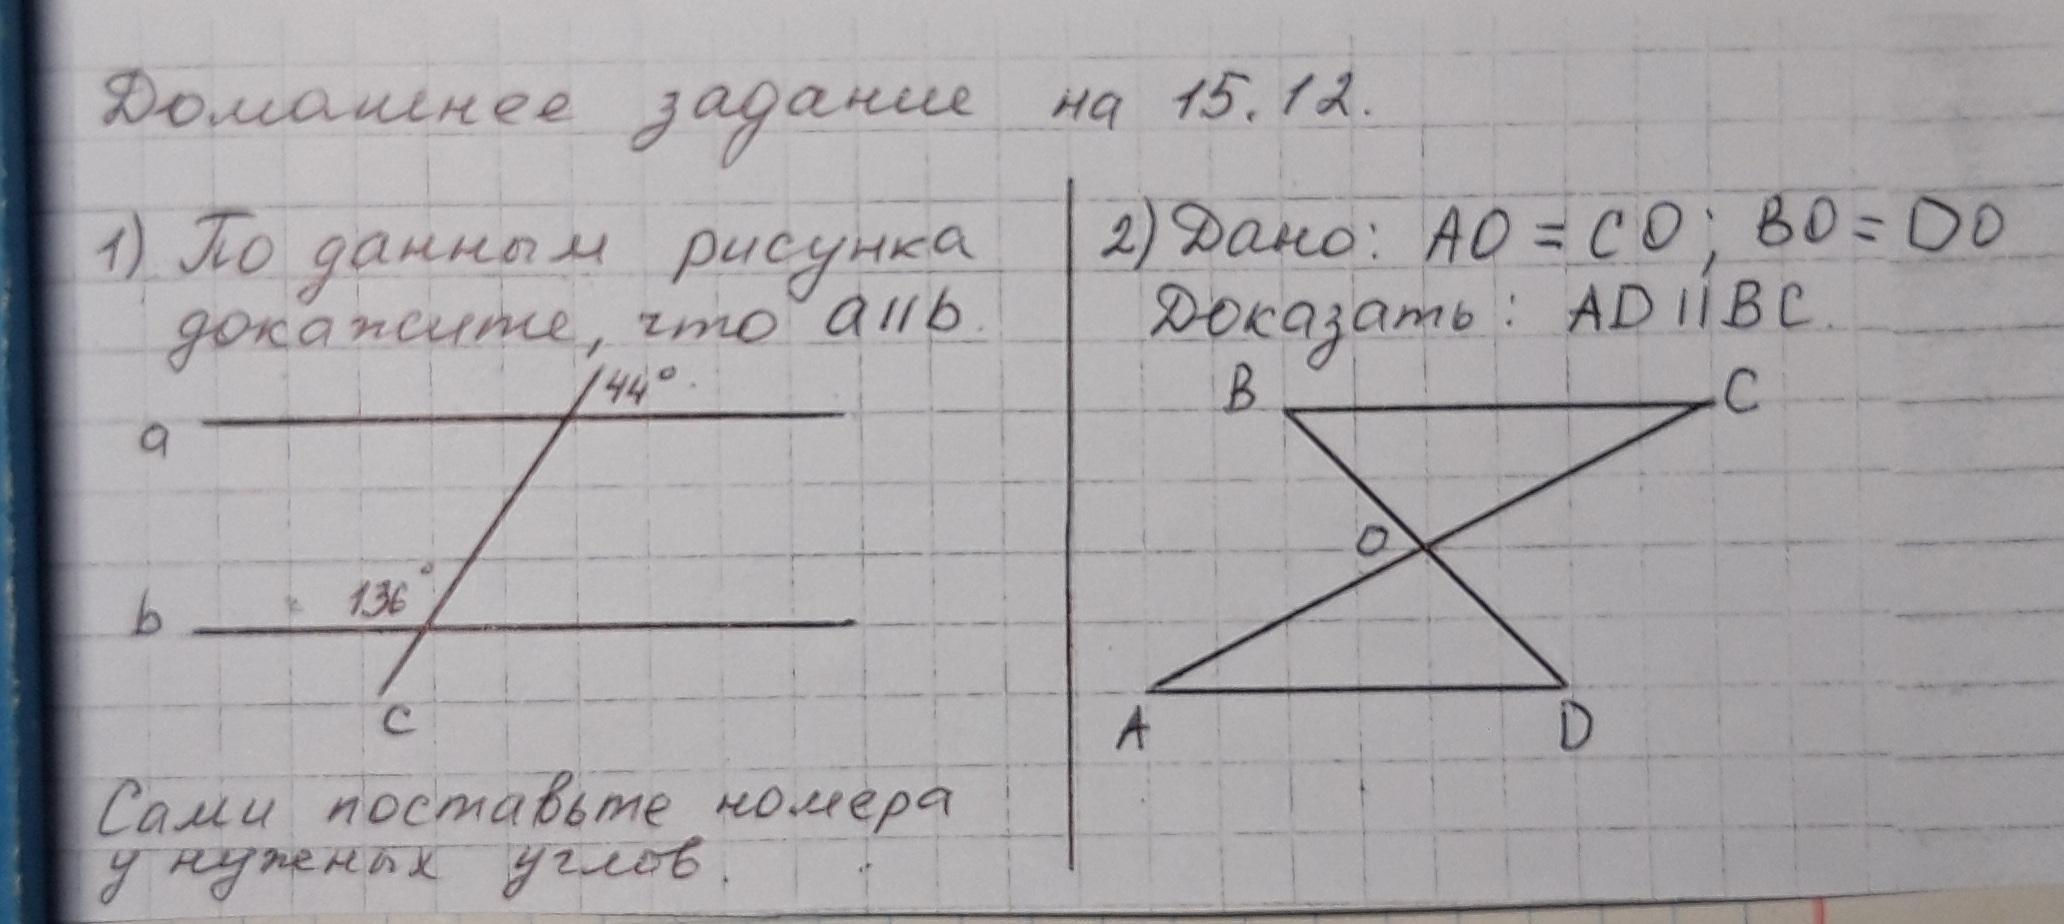 Домашнее задание на 15.12.
1) По данным рисунка
докажите, что a||b.
44°
a
136°
b
c
Сами поставьте номера
у нужных углов.
2) Дано: AO = CO; BO = DO
Доказать: AD || BC.
B
C
O
A
D